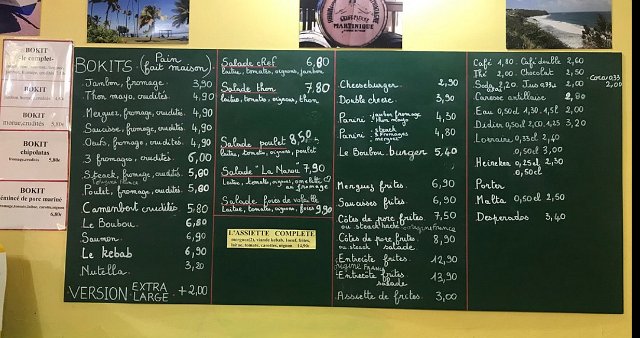 BOKIT
-le complet-
BOKIT
BOKIT
morue, crudités 5,80€
BOKIT
chipolatas
fromage, crudités 5,80€
BOKIT
éminé de porc mariné
6,80€
MARTINIQUE
BOKITS (Pain fait maison)
Jambon, fromage 3,90
Thon mayo, crudités 4,90
Merguez, fromage, crudités 4,90
Saucisse, fromage, crudités 4,90
Oeufs, fromage, crudités 4,90
3 fromages, crudités 6,00
Steack, fromage, crudités 5,80
Poulet, fromage, crudités 5,80
Camembert crudités 5,80
Le Boubou 6,80
Saumon 6,90
Le kebab 6,90
Nutella 3,20
VERSION EXTRA LARGE +2,00
Salade chef 6,80
laitue, tomates, oignons, jambon
Salade thon 7,80
laitue, tomates, oignons, thon
Salade poulet 8,50
laitue, tomates, oignons, poulet
Salade "La Narou" 7,90
Laitue, tomate, oignons, omelette au fromage
Salade foies de volaille
Laitue, tomate, oignons, foies 9,90
L'ASSIETTE COMPLETE
Cheeseburger 2,90
Double cheese 3,90
Panini jambon fromage, thon mayo 4,30
Panini steack 3 fromages merguez 4,80
Le Boubou burger 5,40
Merguez frites 6,90
Saucisses frites 6,90
Côtes de porc frites 7,50
ou steack haché origine France
Côtes de porc frites 8,90
ou steack salade
Entrecôte frites 12,90
origine France
Entrecôte frites salade 13,90
Assiette de frites 3,00
Café 1,80 Café double 2,60
Thé 2,00 Chocolat 2,50
Soda 2,20 Jus 2,60
Coca 33 2,00
Caresse antillaise 2,80
Eau 0,50l 1,30 1,5l 2,00
Didier 0,50l 2,00 1,25 3,20
Lorraine 0,33cl 2,40
0,50cl 3,00
Heineken 0,25cl 2,30
0,50cl
Porter
Malta 0,50cl 2,50
Desperados 3,40